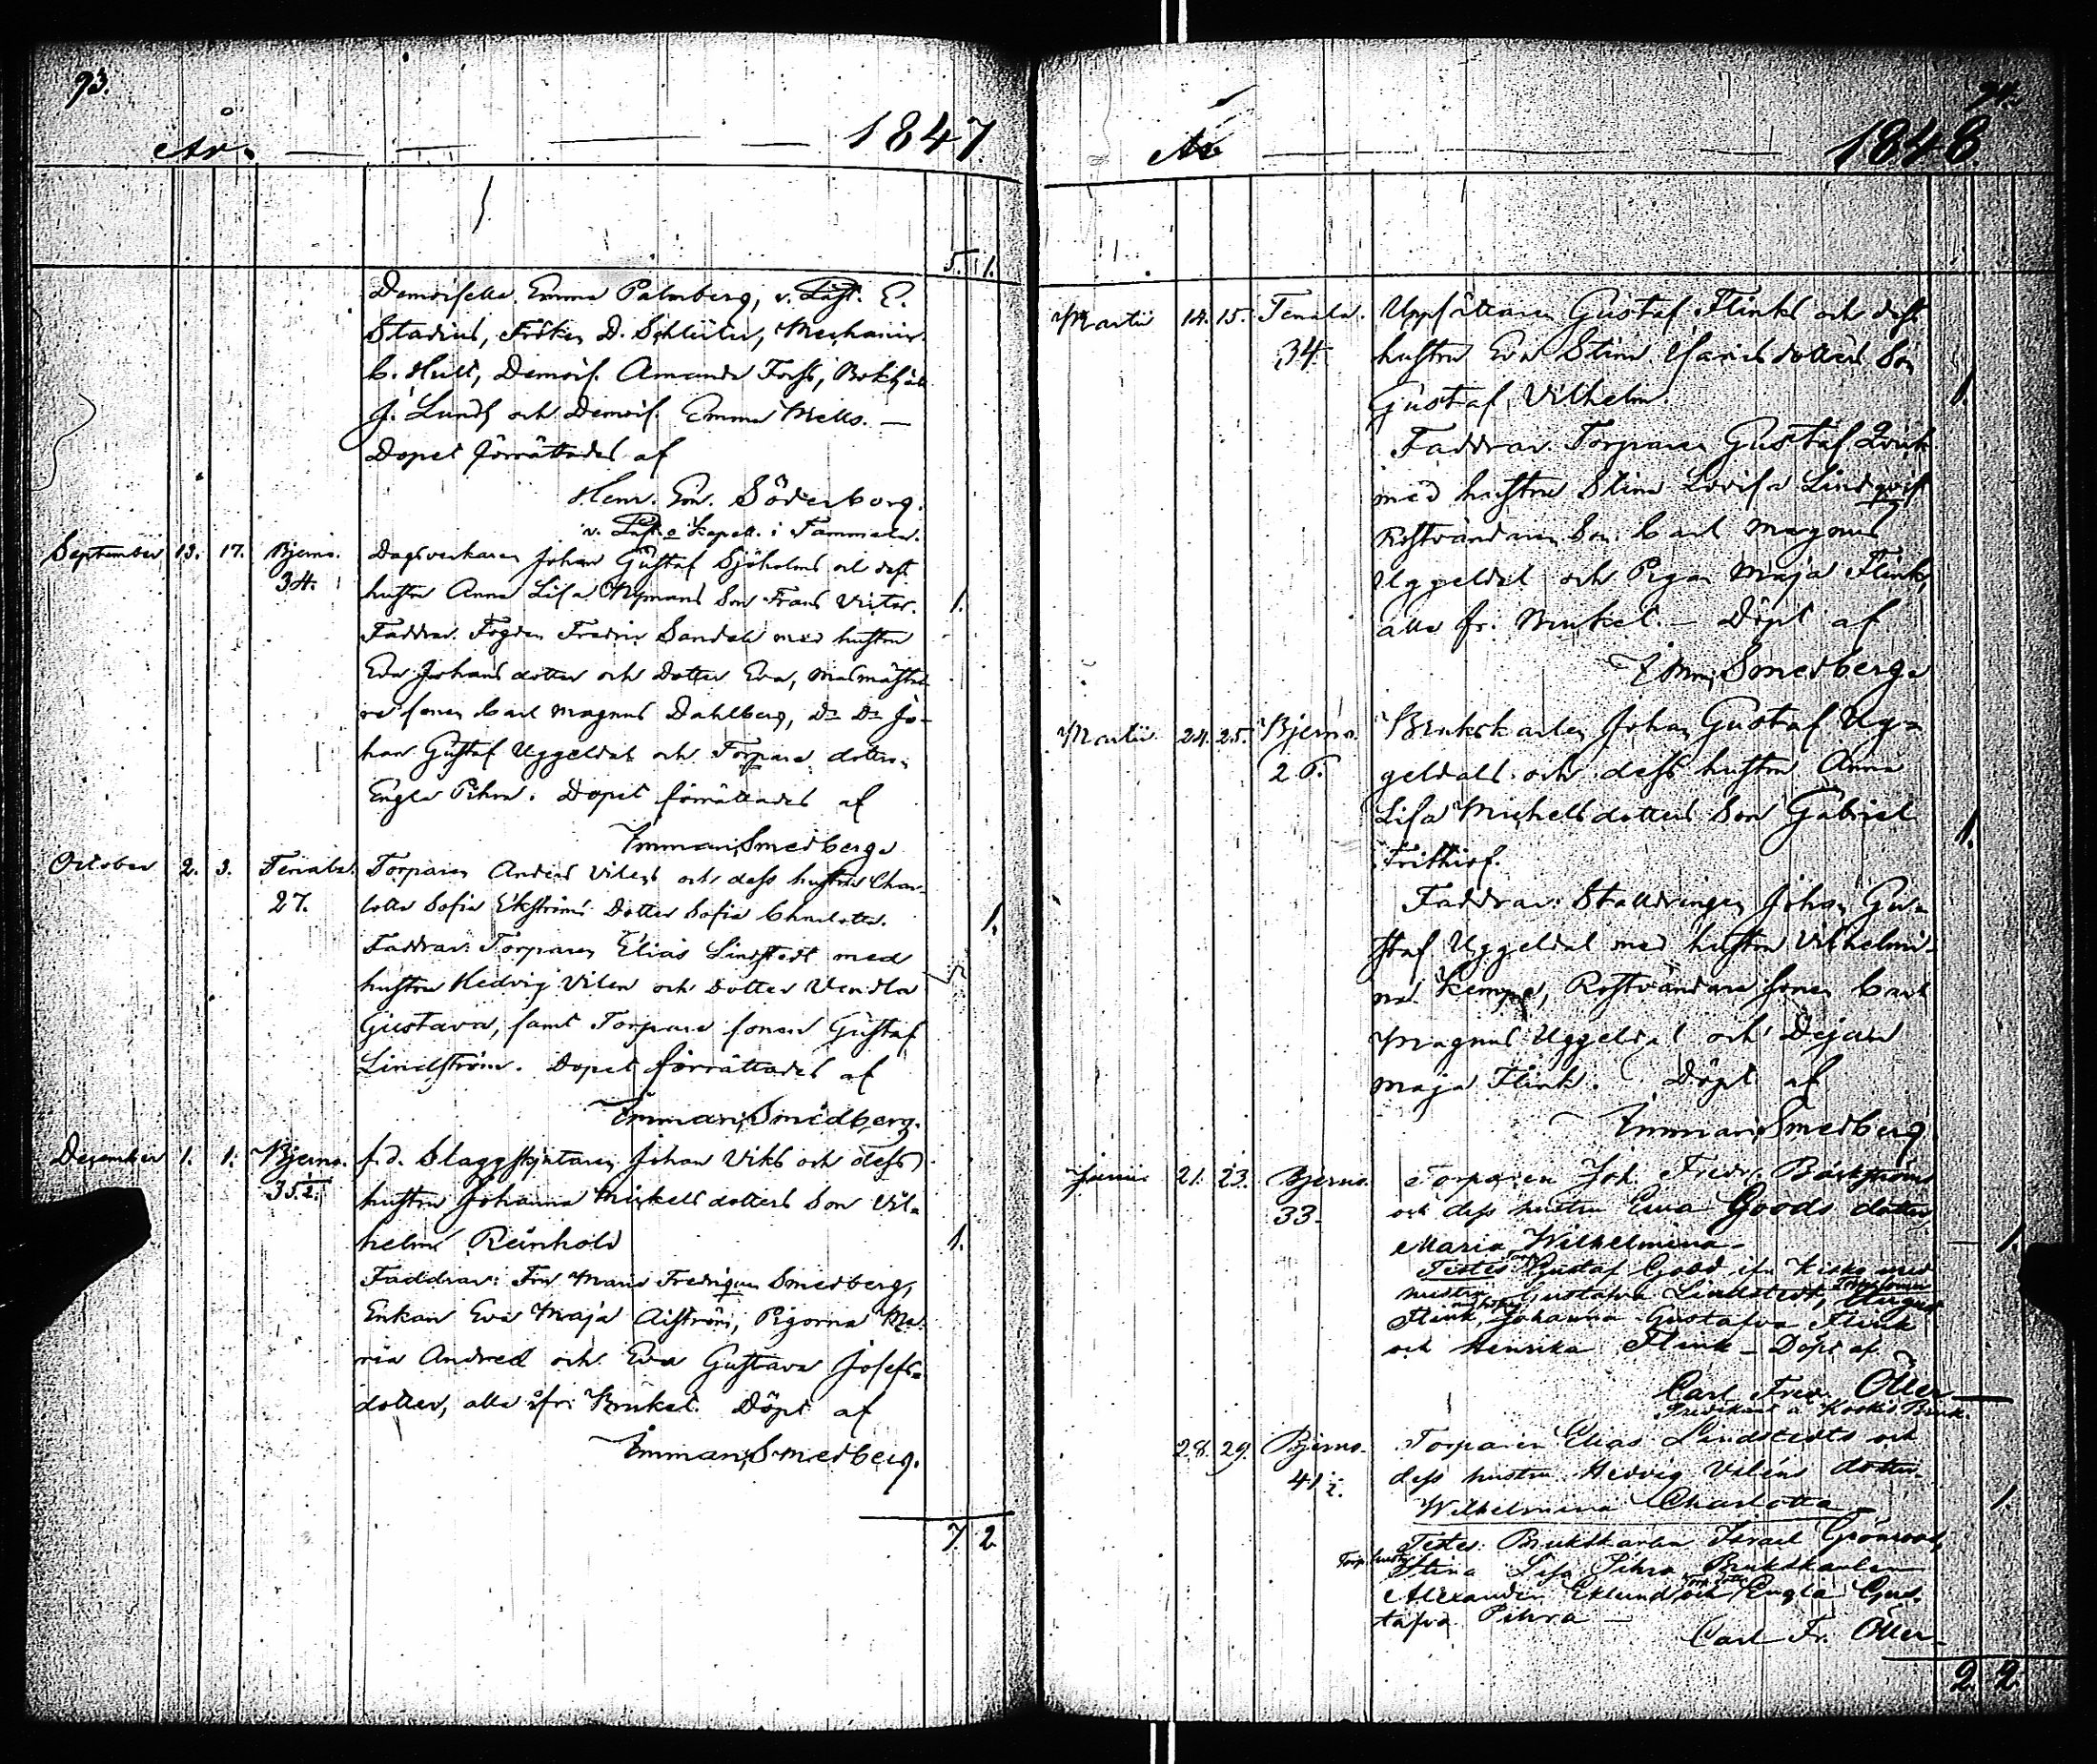 93.
År. 1847
5. 1.
Demoiselle Emma Palmberg, v. Past. E.
Stadius, Fröken D. Schlüter, Mechanic.
C. Hult, Demois. Amanda Forss, Bokhåll.
J. Lunds och Demois. Emma Mells. —
Dopet förrättades af
Henr. Em. Söderborg.
v. Past. o Kapell. i Tammela.
September 13. 17. Bjerno. Dagsverkaren Johan Gustaf Sjöholms och dess
34. hustru Anna Lisa Nymans Son Frans Victor. 1.
Faddrar: Fogden Fredric Sandell med hustru
Eva Johansdotter och dotter Eva, Masmästa-
re sonen Carl Magnus Dahlberg, Do Do Jo-
han Gustaf Uggeldal och Torpare dottren
Engla Pihra. Dopet förrättades af
Imman. Smedberg.
October 2. 3. Tenala. Torparen Anders Vilens och dess hustrus Char-
27. lotta Sofia Ekströms Dotter Sofia Charlotta. 1.
Faddrar: Torparen Elias Lindstedt med
hustru Hedvig Vilen och dotter Vendla
Gustava, samt Torpare sonen Gustaf
Lindström. Dopet förrättades af
Imman. Smedberg.
December 1. 1. Bjerno. f.d. Slaggskjutaren Johan Viks och dess
35.2. hustru Johanna Mickelsdotters Son Vil-
helm Reinhold 1.
Faddrar: Fru Maria Fredrique Smedberg,
Enkan Eva Maja Aiström, Pigorna Ma-
ria Andred och Eva Gustava Josefs-
dotter, alla ifr. Bruket. Döpt af
Imman. Smedberg.
7. 2.
94.
År 1848.
Martii 14. 15. Tenala. Uppsättaren Gustaf Flinks och dess
34. hustru Eva Stina Isaksdotters Son
Gustaf Vilhelm. 1.
Faddrar: Torparen Gustaf Qvick
med hustru Stina Lovisa Lindqvist
Rostvändare Son: Carl Magnus
Uggeldal och Pigan Maja Flink,
alla fr. Bruket. — Döpt af
Imm. Smedberg.
Martii 24. 25. Bjerno. Brukskarlen Johan Gustaf Ug-
26. geldals och dess hustru Anna
Lisa Michelsdotters Son Gabriel
Frithiof. 1.
Faddrar: Stalldrängen Johan Gu-
staf Uggeldal med hustru Vilhelmi-
na Kempe, Rostvändare sonen Carl
Magnus Uggeldal och Dejan
Maja Flink. Döpt af
Imman. Smedberg
Junii 21. 23. Bjerno. Torparen Joh. Fredr. Bäckströms
33. och dess hustru Eva Goods dotter,
Maria Wilhelmina. 1.
Testes Gustaf Good ifr. Kisko med
hustru Gustafva Lindstedt, Torp. sonen August
Flink, Johanna Gustafva Flink
och Henrika Flink — Döpt af
Carl Fred. Öller.
Predikant å Koskis Bruk.
28. 29. Bjerno. Torparen Elias Lindstedts och
41 2. dess hustru Hedvig Viléns dotter
Wilhelmina Charlotta 1.
Testes: Brukskarlen Israel Grönroos,
Torp. hustr. Stina Lisa Pihra, Brukskarlen
Alexander Eklund och Engla Gus-
tafva Pihra —
Carl Fr. Öller.
2. 2.